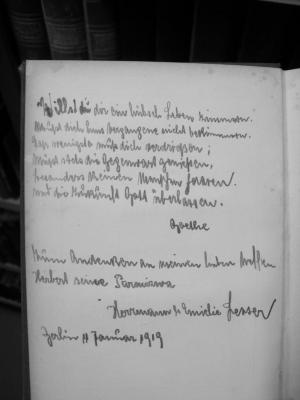 Willst du dir ein hübsch Leben zimmern,
Mußt dich ums Vergangene nicht bekümmern.
Das wenigste muß dich verdrießen;
Mußt stets die Gegenwart genießen,
besonders keinen Menschen hassen.
und die Zukunft Gott überlassen.
Goethe
Zum Andenken an seinen lieben Neffen
Herbert seine
Herrmann & Emilie Lesser
Berlin 11 Januar 1919